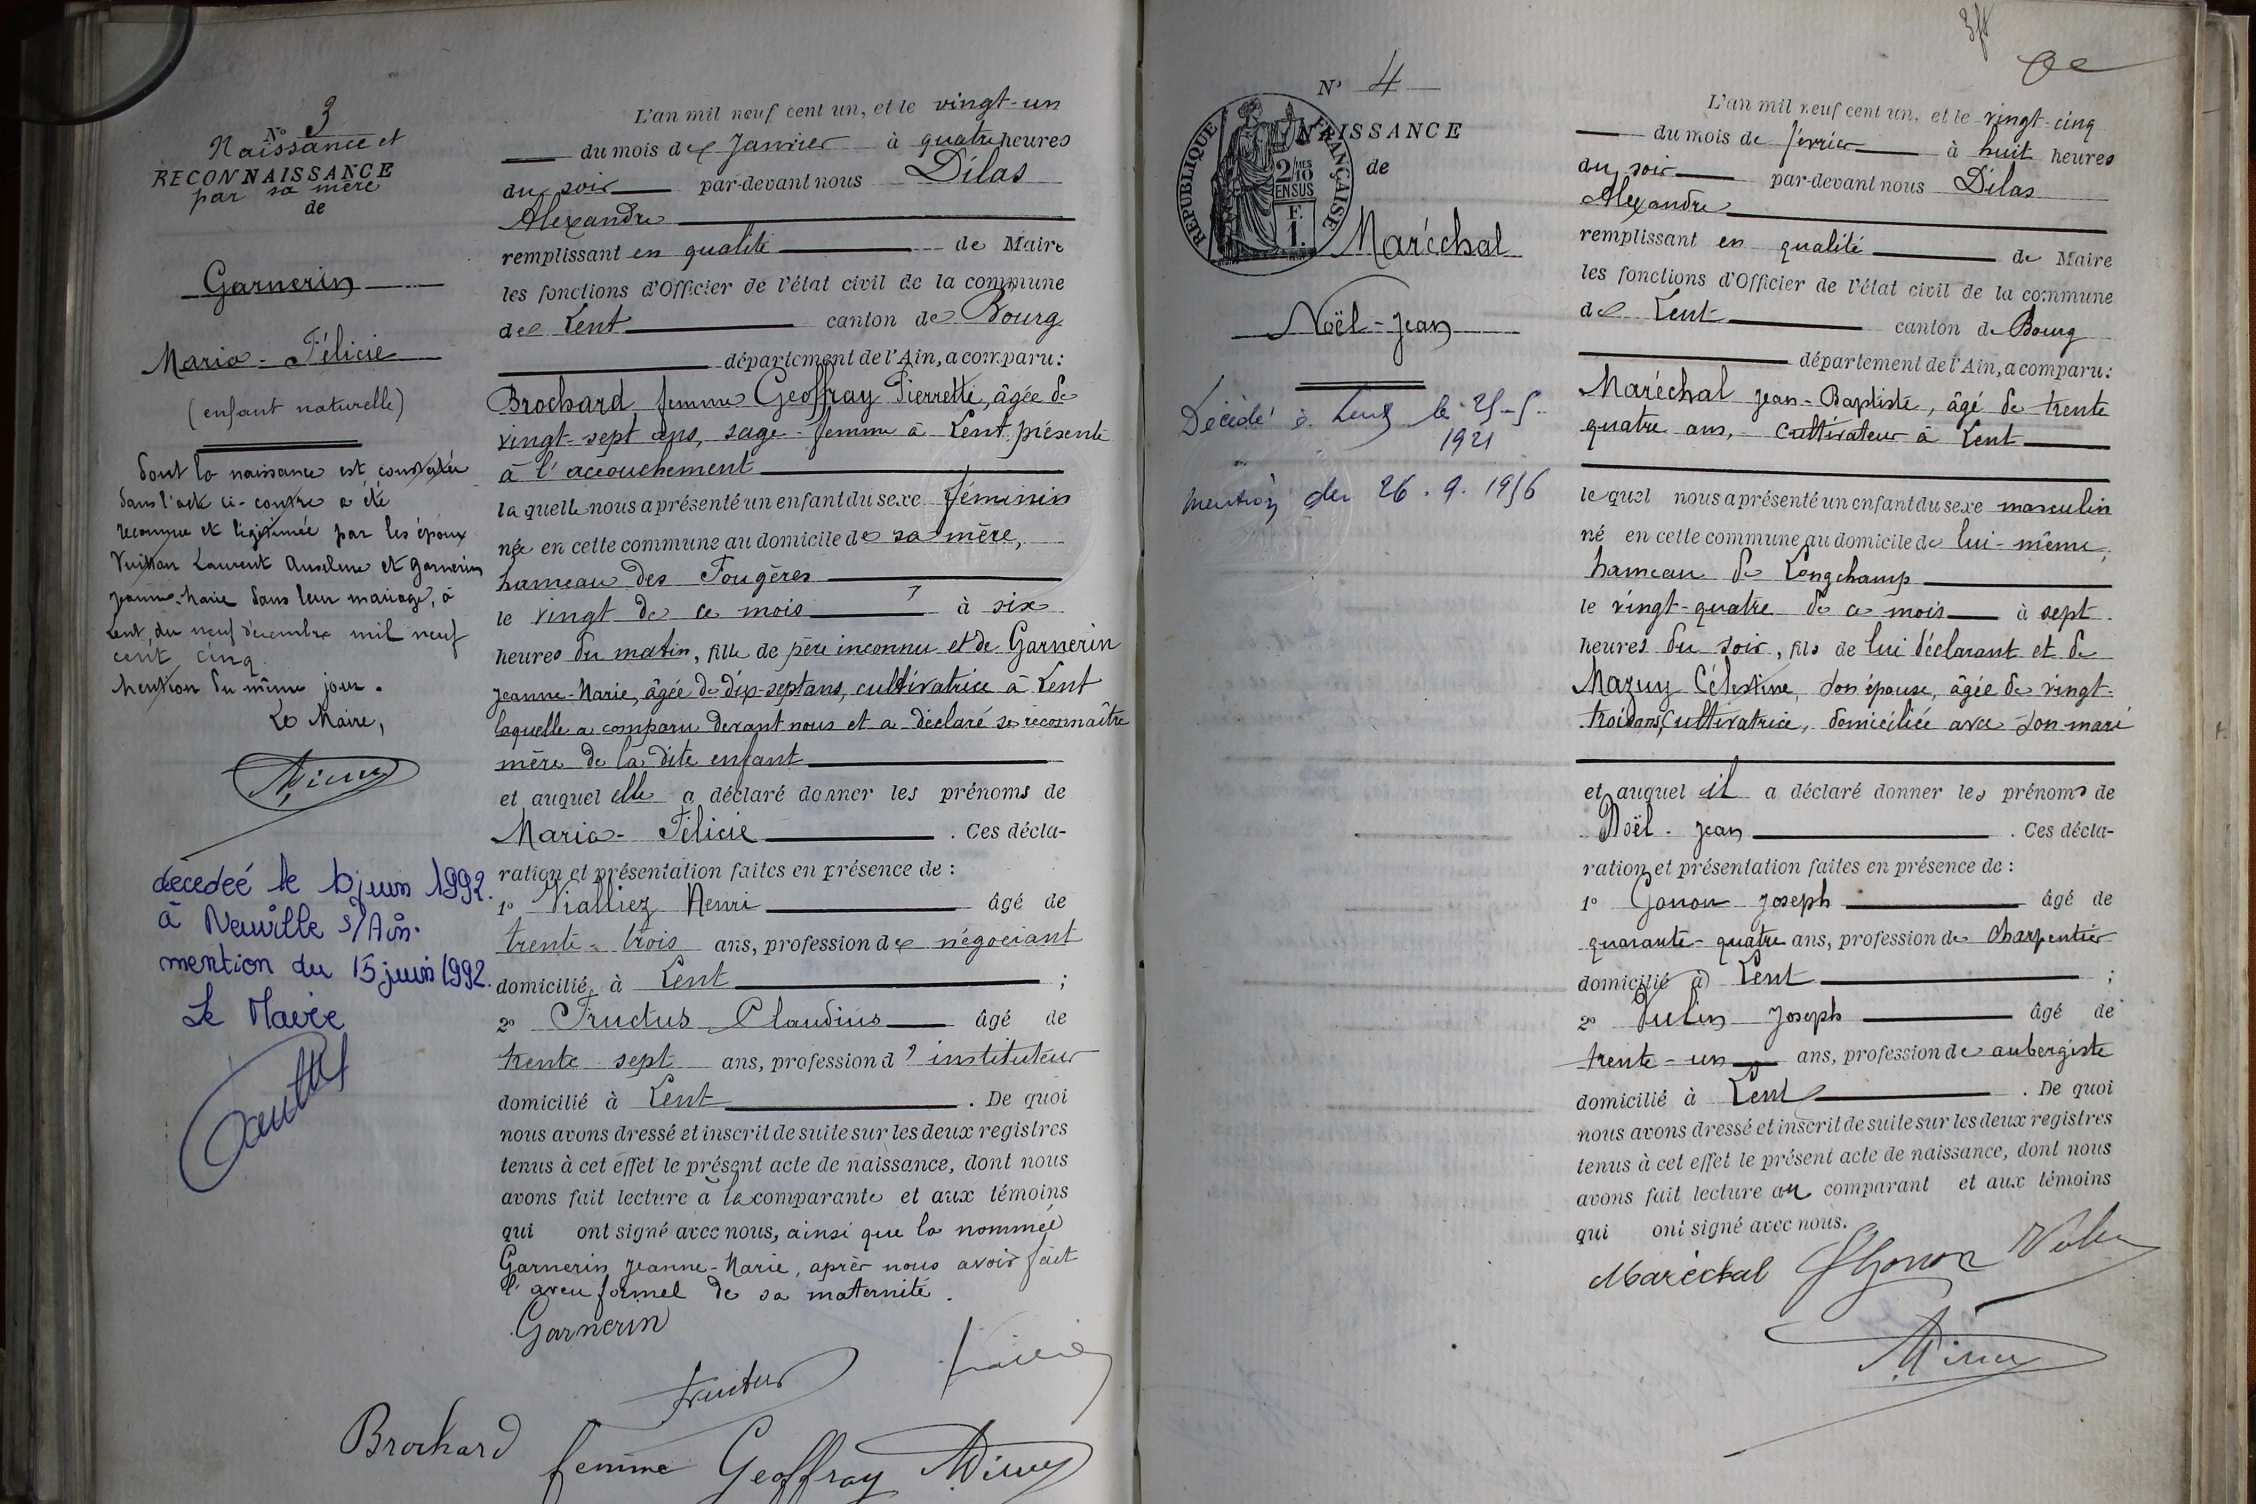 N° 3
Naissance et
RECONNAISSANCE
par sa mère
de
Garnerin
Maria - Félicie
(enfant naturelle)
dont la naissance est constatée
dans l'acte ci-contre a été
reconnue et légitimée par les époux
Vuitton Laurent Anselme et Garnerin
Jeanne-Marie dans leur mariage, à
Lent, du neuf décembre mil neuf
cent cinq.
Mention du même jour.
Le Maire,
décédée le 6 juin 1992.
à Neuville s/Ain.
mention du 15 juin 1992.
Le Maire
L'an mil neuf cent un, et le vingt-un
du mois de Janvier à quatre heures
du soir par-devant nous Dilas
Alexandre
remplissant en qualité de Maire
les fonctions d'Officier de l'état civil de la commune
de Lent canton de Bourg
département de l'Ain, a comparu :
Brochard, femme Geoffray Pierrette, âgée de
vingt-sept ans, sage-femme à Lent, présente
à l'accouchement
laquelle nous a présenté un enfant du sexe féminin
née en cette commune au domicile de sa mère,
hameau des Fougères
le vingt de ce mois à six
heures du matin, fille de père inconnu et de Garnerin
Jeanne-Marie, âgée de dix-sept ans, cultivatrice à Lent
laquelle a comparu devant nous et a déclaré se reconnaître
mère de la dite enfant
et auquel elle a déclaré donner les prénoms de
Maria - Félicie . Ces décla-
ration et présentation faites en présence de :
1° Vialliez Henri âgé de
trente-trois ans, profession de négociant
domicilié à Lent ;
2° Fructus Claudius âgé de
trente sept ans, profession d'instituteur
domicilié à Lent . De quoi
nous avons dressé et inscrit de suite sur les deux registres
tenus à cet effet le présent acte de naissance, dont nous
avons fait lecture à la comparante et aux témoins
qui ont signé avec nous, ainsi que la nommée
Garnerin Jeanne-Marie, après nous avoir fait
l'aveu formel de sa maternité.
Garnerin
Fructus
Brochard femme Geoffray
N° 4
NAISSANCE
de
RÉPUBLIQUE FRANÇAISE
2/10
EN SUS
F.
1.
Maréchal
Noël - Jean
Décédé à Lent le 25-5-
1921
mention du 26.9.1956
L'an mil neuf cent un, et le vingt-cinq
du mois de février à huit heures
du soir par-devant nous Dilas
Alexandre
remplissant en qualité de Maire
les fonctions d'Officier de l'état civil de la commune
de Lent canton de Bourg
département de l'Ain, a comparu :
Maréchal Jean-Baptiste, âgé de trente
quatre ans, cultivateur à Lent
lequel nous a présenté un enfant du sexe masculin
né en cette commune au domicile de lui-même,
hameau de Longchamp
le vingt-quatre de ce mois à sept
heures du soir, fils de lui déclarant et de
Mazuy Célestine, son épouse, âgée de vingt-
trois ans, cultivatrice, domiciliée avec son mari
et auquel il a déclaré donner les prénoms de
Noël - Jean . Ces décla-
ration et présentation faites en présence de :
1° Gonon Joseph âgé de
quarante-quatre ans, profession de charpentier
domicilié à Lent ;
2° Vulin Joseph âgé de
trente-un ans, profession de aubergiste
domicilié à Lent . De quoi
nous avons dressé et inscrit de suite sur les deux registres
tenus à cet effet le présent acte de naissance, dont nous
avons fait lecture au comparant et aux témoins
qui ont signé avec nous.
Maréchal Gonon Vulin